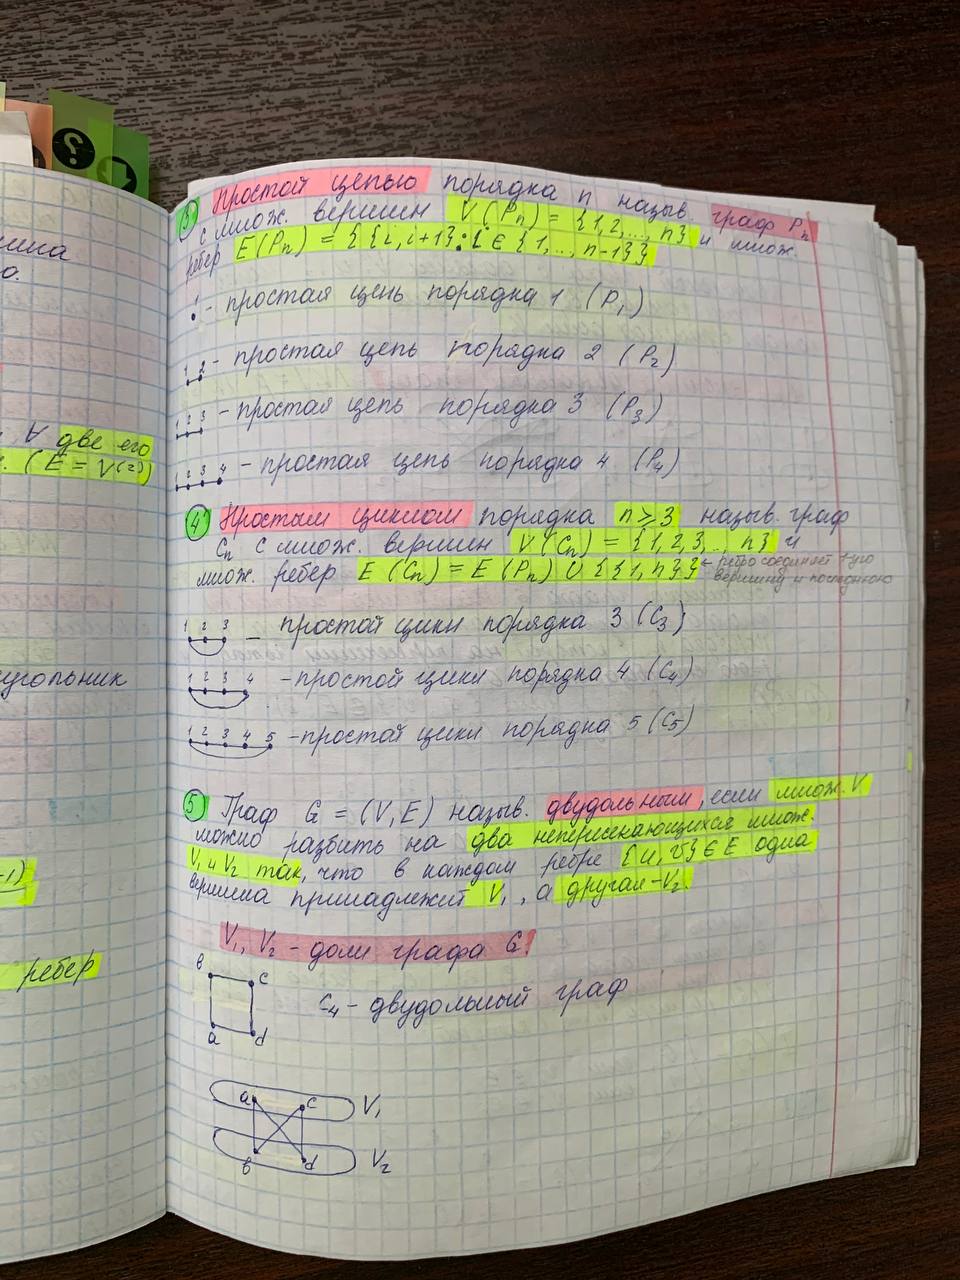 ребер
угольник
∀ две его
(E = V(2))
-1)
3 Простой цепью порядка n назыв. граф Pn
с множ. вершин V(Pn) = {1,2,..., n} и множ.
ребер E(Pn) = {{i, i+1}: i ∈ {1,..., n-1}}
1
- простая цепь порядка 1 (P1)
1 2 - простая цепь порядка 2 (P2)
1 2 3 - простая цепь порядка 3 (P3)
1 2 3 4 - простая цепь порядка 4 (P4)
4 Простым циклом порядка n≥3 назыв. граф
Cn с множ. вершин V(Cn) = {1,2,3,.., n} и
множ. ребер E(Cn) = E(Pn) ∪ {{1,n}} ← ребро соединяет 1-ую
вершину и последнюю
1 2 3 - простой цикл порядка 3 (C3)
1 2 3 4 - простой цикл порядка 4 (C4)
1 2 3 4 5 - простой цикл порядка 5 (C5)
5 Граф G = (V,E) назыв. двудольным, если множ. V
можно разбить на два непересекающихся множ.
V1 и V2 так, что в каждом ребре {u,v}∈E одна
вершина принадлежит V1, а другая - V2.
V1, V2 - доли графа G!
в c
C4 - двудольный граф
a d
a c V1
в d V2